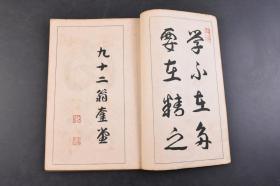 学不在多
要在精之
九十二翁奎堂